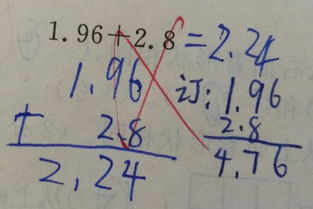 1.96+2.8=2.24
1.96
+ 2.8
2.24
订:1.96
2.8
4.76